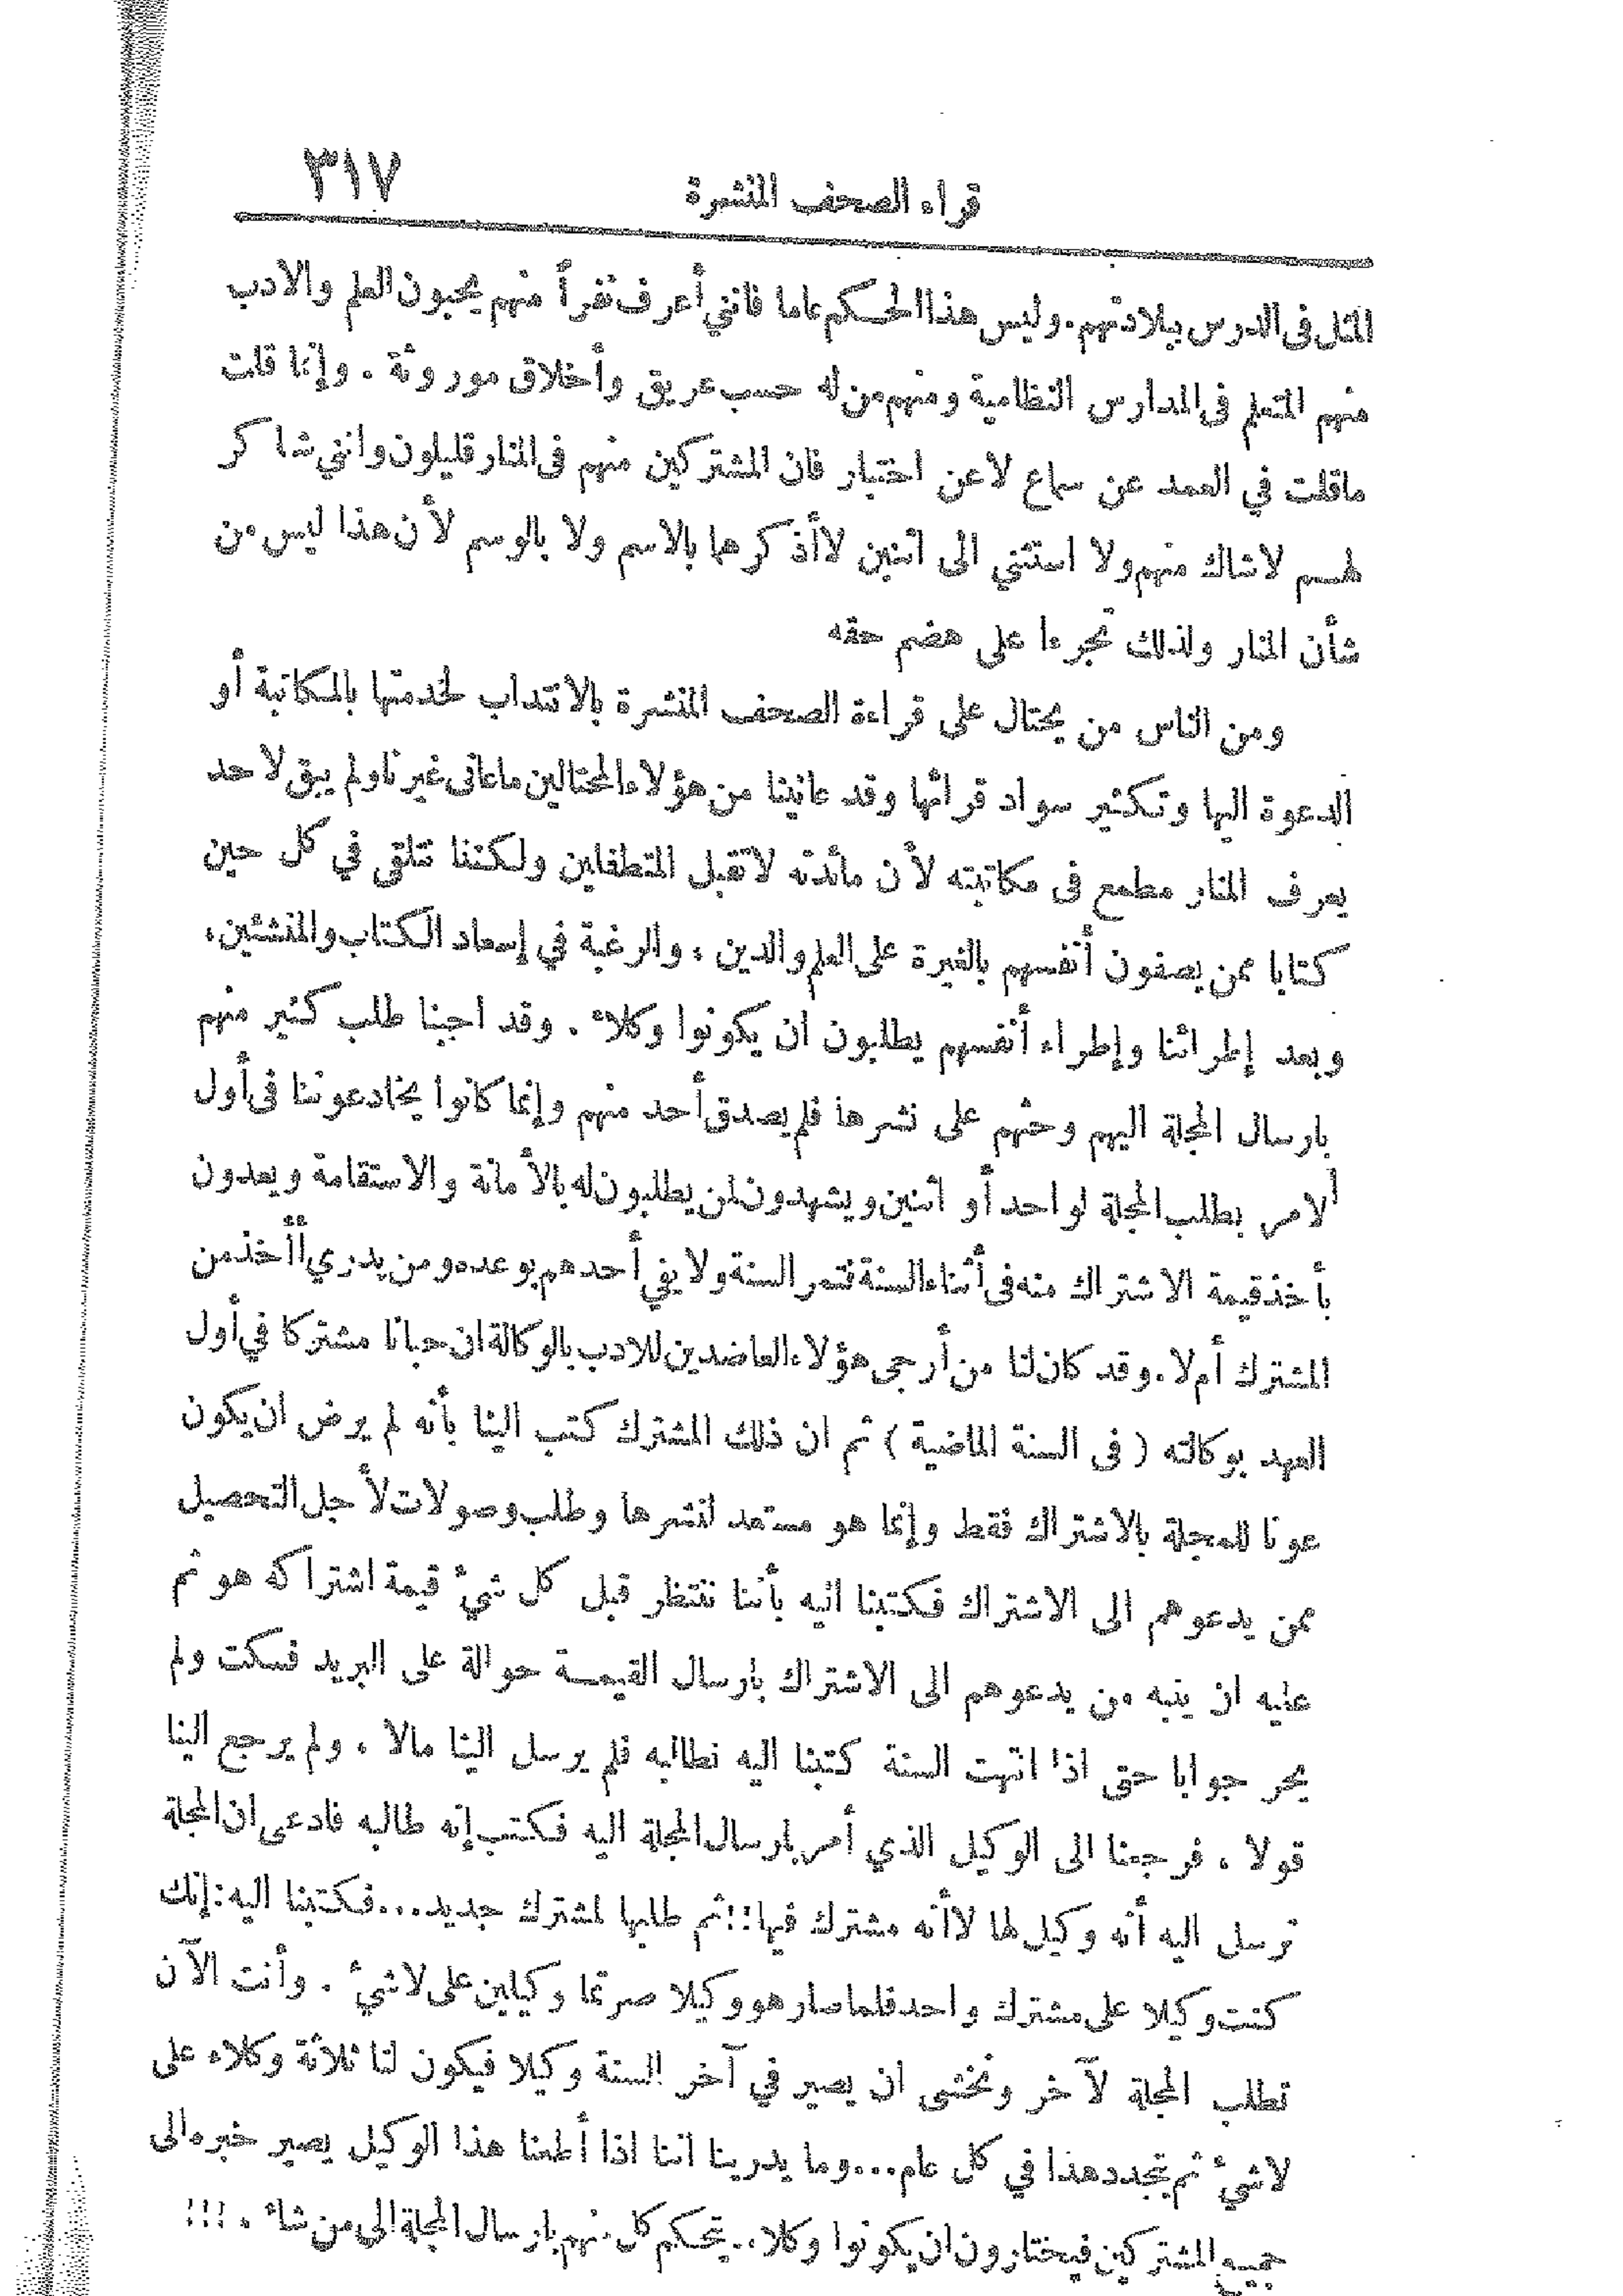 قراء الصحف المنشرة ٣١٧
المثل في الدرس ببلادتهم. وليس هذا الحكم عاما فانني أعرف نفراً منهم يحبون العلم والادب
منهم المتعلم في المدارس النظامية ومنهم من له حسب عريق وأخلاق موروثة . وإنما قلت
ماقلت في العمد عن سماع لاعن اختبار فان المشتركين منهم في المنار قليلون وانني شاكر
لهم لاشاك منهم ولا استثني الى اثنين لاأذكرهما بالاسم ولا بالوسم لأن هذا ليس من
شأن المنار ولذلك تجرءا على هضم حقه
ومن الناس من يحتال على قراءة الصحف المنشرة بالانتداب لخدمتها بالمكاتبة أو
الدعوة اليها وتكثير سواد قرائها وقد عانينا من هؤلاء المحتالين ماعانى غيرنا ولم يبق لاحد
يعرف المنار مطمع في مكاتبته لأن مائدته لاتقبل المتطفلين ولكننا نتلقى في كل حين
كتابا ممن يصفون أنفسهم بالغيرة على العلم والدين ، والرغبة في إسعاد الكتاب والمنشئين،
وبعد إطرائنا وإطراء أنفسهم يطلبون ان يكونوا وكلاء . وقد اجبنا طلب كثير منهم
بارسال المجلة اليهم وحثهم على نشرها فلم يصدق أحد منهم وإنما كانوا يخادعوننا في أول
الامر بطلب المجلة لواحد أو اثنين ويشهدون لمن يطلبون له بالأمانة والاستقامة ويعدون
بأخذ قيمة الاشتراك منه في أثناء السنة فتمر السنة ولا يفي أحدهم بوعده ومن يدري أأخذ من
المشترك أم لا. وقد كان لنا من أرجى هؤلاء العاضدين للادب بالوكالة ان حبانا مشتركا في أول
العهد بوكالته ( في السنة الماضية ) ثم ان ذلك المشترك كتب الينا بأنه لم يرض ان يكون
عونا للمجلة بالاشتراك فقط وإنما هو مستعد لنشرها وطلب وصولات لأجل التحصيل
ممن يدعوهم الى الاشتراك فكتبنا اليه بأننا ننتظر قبل كل شيء قيمة اشتراكه هو ثم
عليه ان ينبه من يدعوهم الى الاشتراك بارسال القيمة حوالة على البريد فسكت ولم
يحر جوابا حتى اذا انتهت السنة كتبنا اليه نطالبه فلم يرسل الينا مالا ، ولم يرجع الينا
قولا ، فرجعنا الى الوكيل الذي أمر بارسال المجلة اليه فكتب إنه طالبه فادعى ان المجلة
ترسل اليه أنه وكيل لها لاأنه مشترك فيها!! ثم طلبها لمشترك جديد... فكتبنا اليه: إنك
كنت وكيلا على مشترك واحد فلما صار هو وكيلا صرتما وكيلين على لاشيء . وأنت الآن
تطلب المجلة لآخر ونخشى ان يصير في آخر السنة وكيلا فيكون لنا ثلاثة وكلاء على
لاشيء ثم يتجدد هذا في كل عام... وما يدرينا اننا اذا أطعنا هذا الوكيل يصير خبره الى
جميع المشتركين فيختارون ان يكونوا وكلاء. يتحكم كل منهم بارسال المجلة الى من شاء . !!!